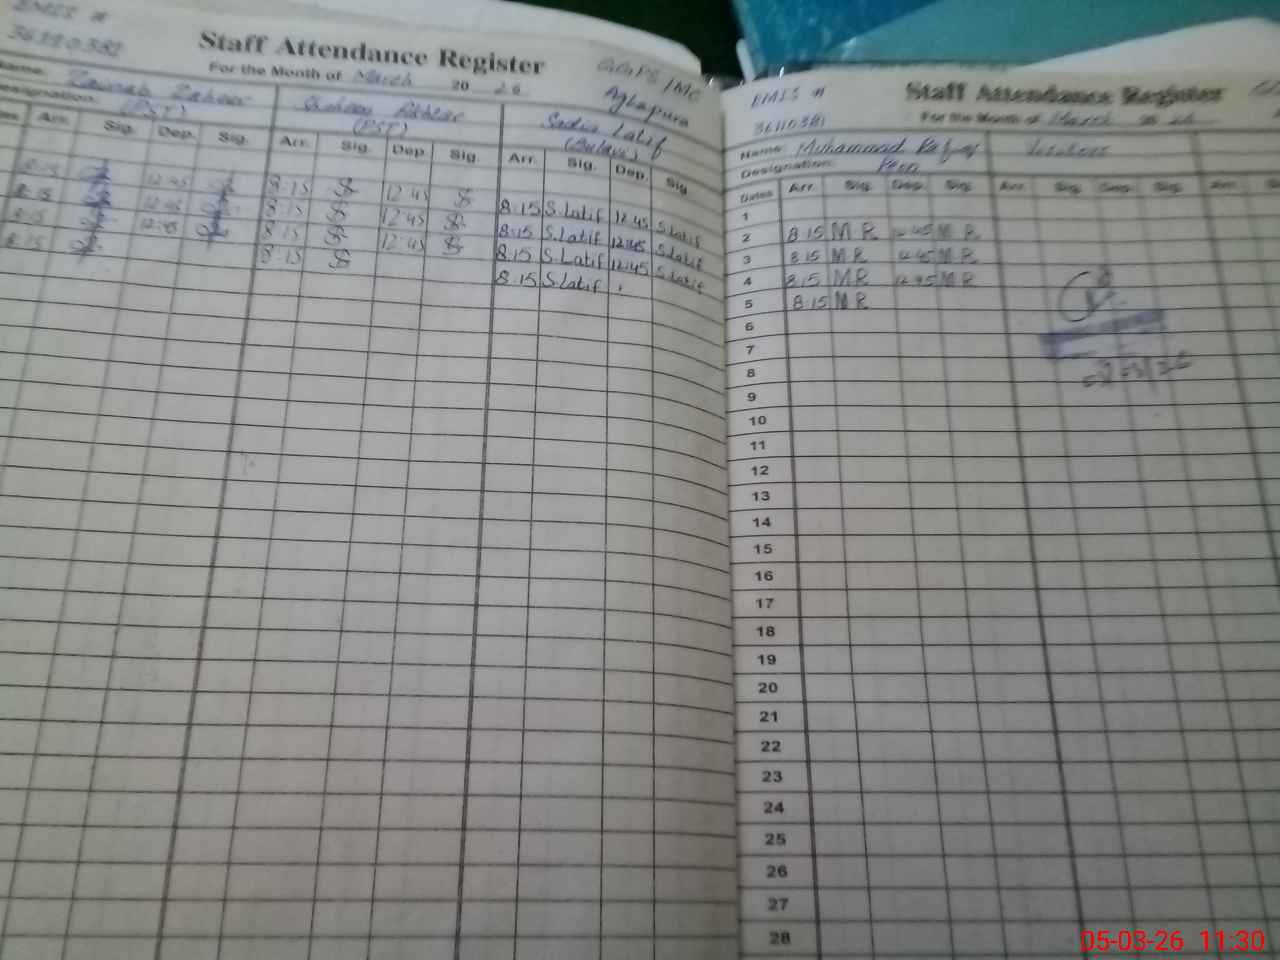 EMIS #
Staff Attendance Register
For the Month of March 20 26
GGPS/MC
Aghapura
Name: Zainab Zaheer
Designation: (PST)
(PST)
Sadia Latif
Arr. Sig. Dep. Sig. Arr. Sig. Dep. Sig. Arr. Sig. Dep. Sig.
8:15 12:45 8:15 12:45 8:15 S.Latif 12:45 S.Latif
8:15 12:45 8:15 12:45 8:15 S.Latif 12:45 S.Latif
8:15 12:45 8:15 12:45 8:15 S.Latif 12:45 S.Latif
8:15 8:15 8:15 S.Latif
EMIS #
36110381
Staff Attendance Register
For the Month of March 20 26
Name: Muhammad Visitors
Designation: Peon
Dates Arr. Sig. Dep. Sig. Arr. Sig. Dep. Sig. Arr.
1
2 8:15 M R 12:45 M R
3 8:15 M R 12:45 M R
4 8:15 M R 12:45 M R
5 8:15 M R
6
7
8
9
10
11
12
13
14
15
16
17
18
19
20
21
22
23
24
25
26
27
28
05-03-26 11:30